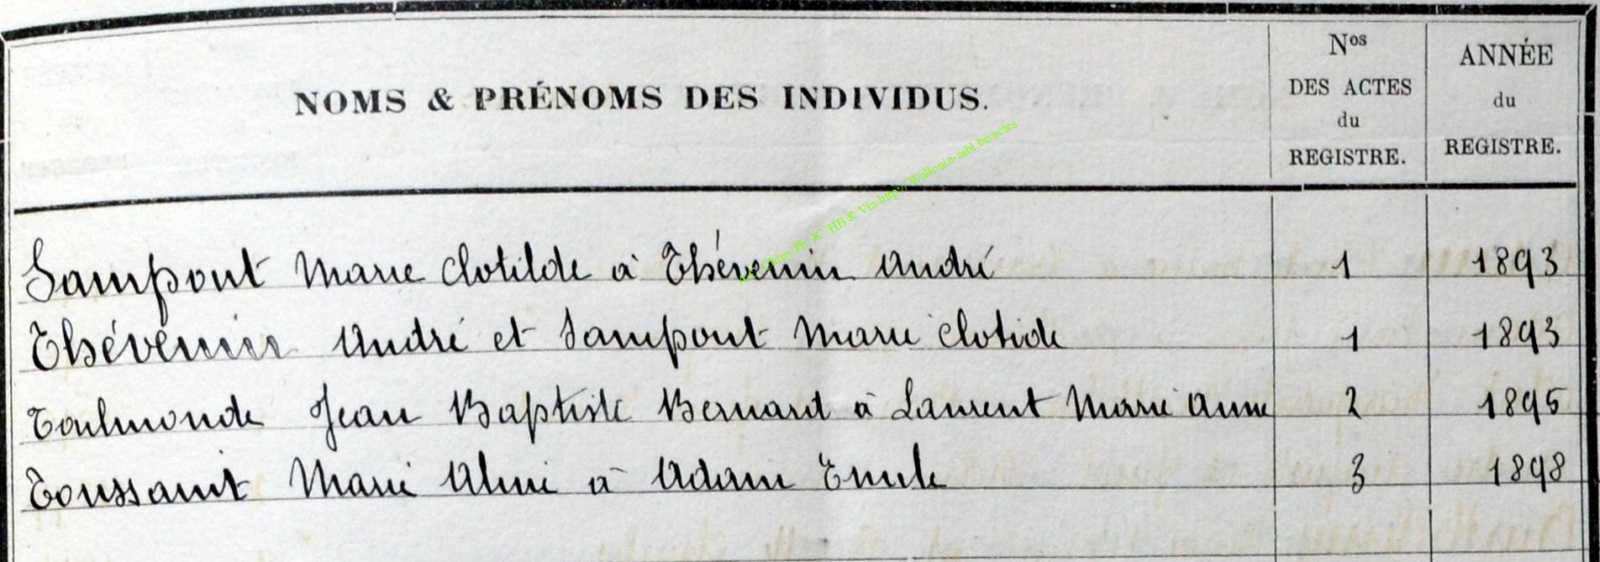 NOMS & PRÉNOMS DES INDIVIDUS.
Nos DES ACTES du REGISTRE.
ANNÉE du REGISTRE.
Sampont Marie Clotilde à Thévenin André 1 1893
Thévenin André et Sampont Marie Clotide 1 1893
Toulmonde Jean Baptiste Bernard à Laurent Marie Anne 2 1895
Toussaint Marie Aline à Adam Emile 3 1898